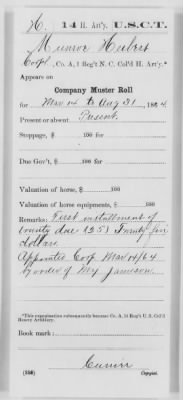 H. 14 H. Art'y. U.S.C.T.
Munroe
Corpl, Co. A, 1 Reg't N. C. Col'd H. Art'y.*
Appears on
Company Muster Roll
for Mar 04 to Aug 31, 1864
Present or absent Present
Stoppage, $ 100 for
Due Gov't, $ 100 for
Valuation of horse, $ 100
Valuation of horse equipments, $ 100
Remarks: First installment of
bounty due (25) Twenty five
dollars
Appointed Corp. Mar 04/64
by order of Maj Jameson
*This organization subsequently became Co. A, 14 Reg't U. S. Col'd
Heavy Artillery.
Book mark:
(358) Copyist.